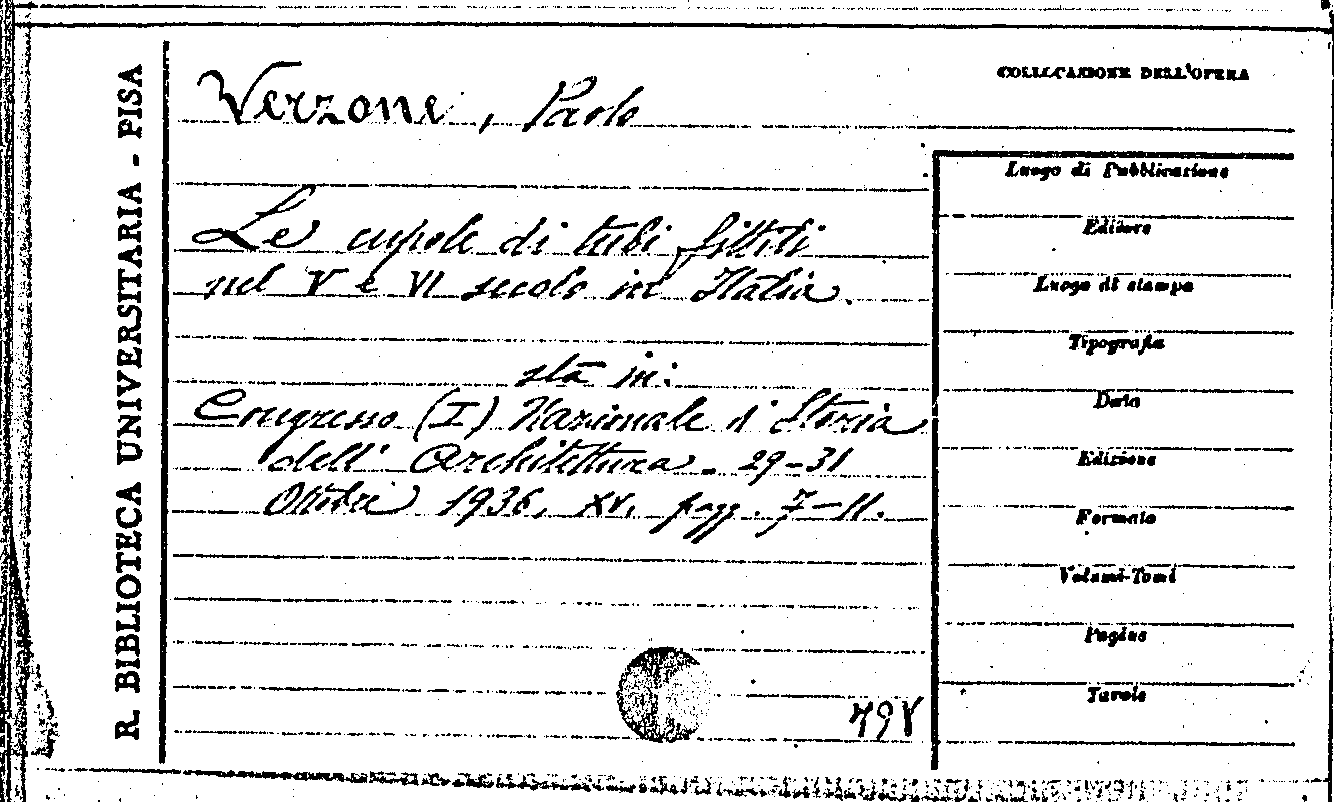 R. BIBLIOTECA UNIVERSITARIA - PISA
Verzone, Paolo
Le cupole di tubi fittili
nel V e VI secolo in Italia.
sta in:
Congresso (I) Nazionale di Storia
dell' Architettura. 29-31
Ottobre 1936, XV. pagg. 7-11.
COLLOCAZIONE DELL'OPERA
Luogo di Pubblicazione
Editore
Luogo di stampa
Tipografia
Data
Edizione
Formato
Volumi-Tomi
Pagine
Tavole